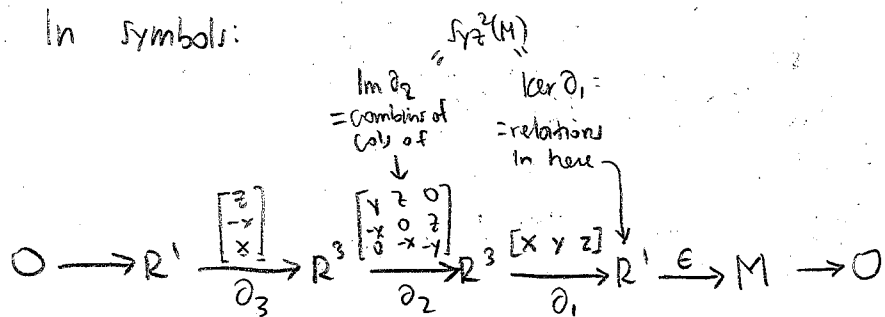 In symbols:
Syz²(M)
Im ∂₂ = ker ∂₁ =
= combins of cols of
= relations in here
0 → R¹ →[z -x x] ∂₃ R³ →[y z 0 -x 0 z 0 -x -y] ∂₂ R³ →[x y z] ∂₁ R¹ →ε M → 0